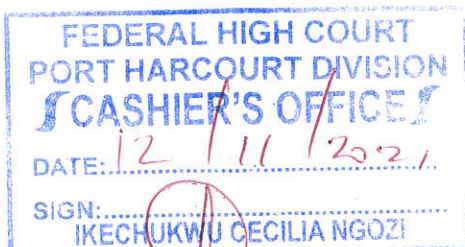 FEDERAL HIGH COURT
PORT HARCOURT DIVISION
CASHIER'S OFFICE
DATE: 12/11/2021
SIGN:
IKECHUKWU CECILIA NGOZI